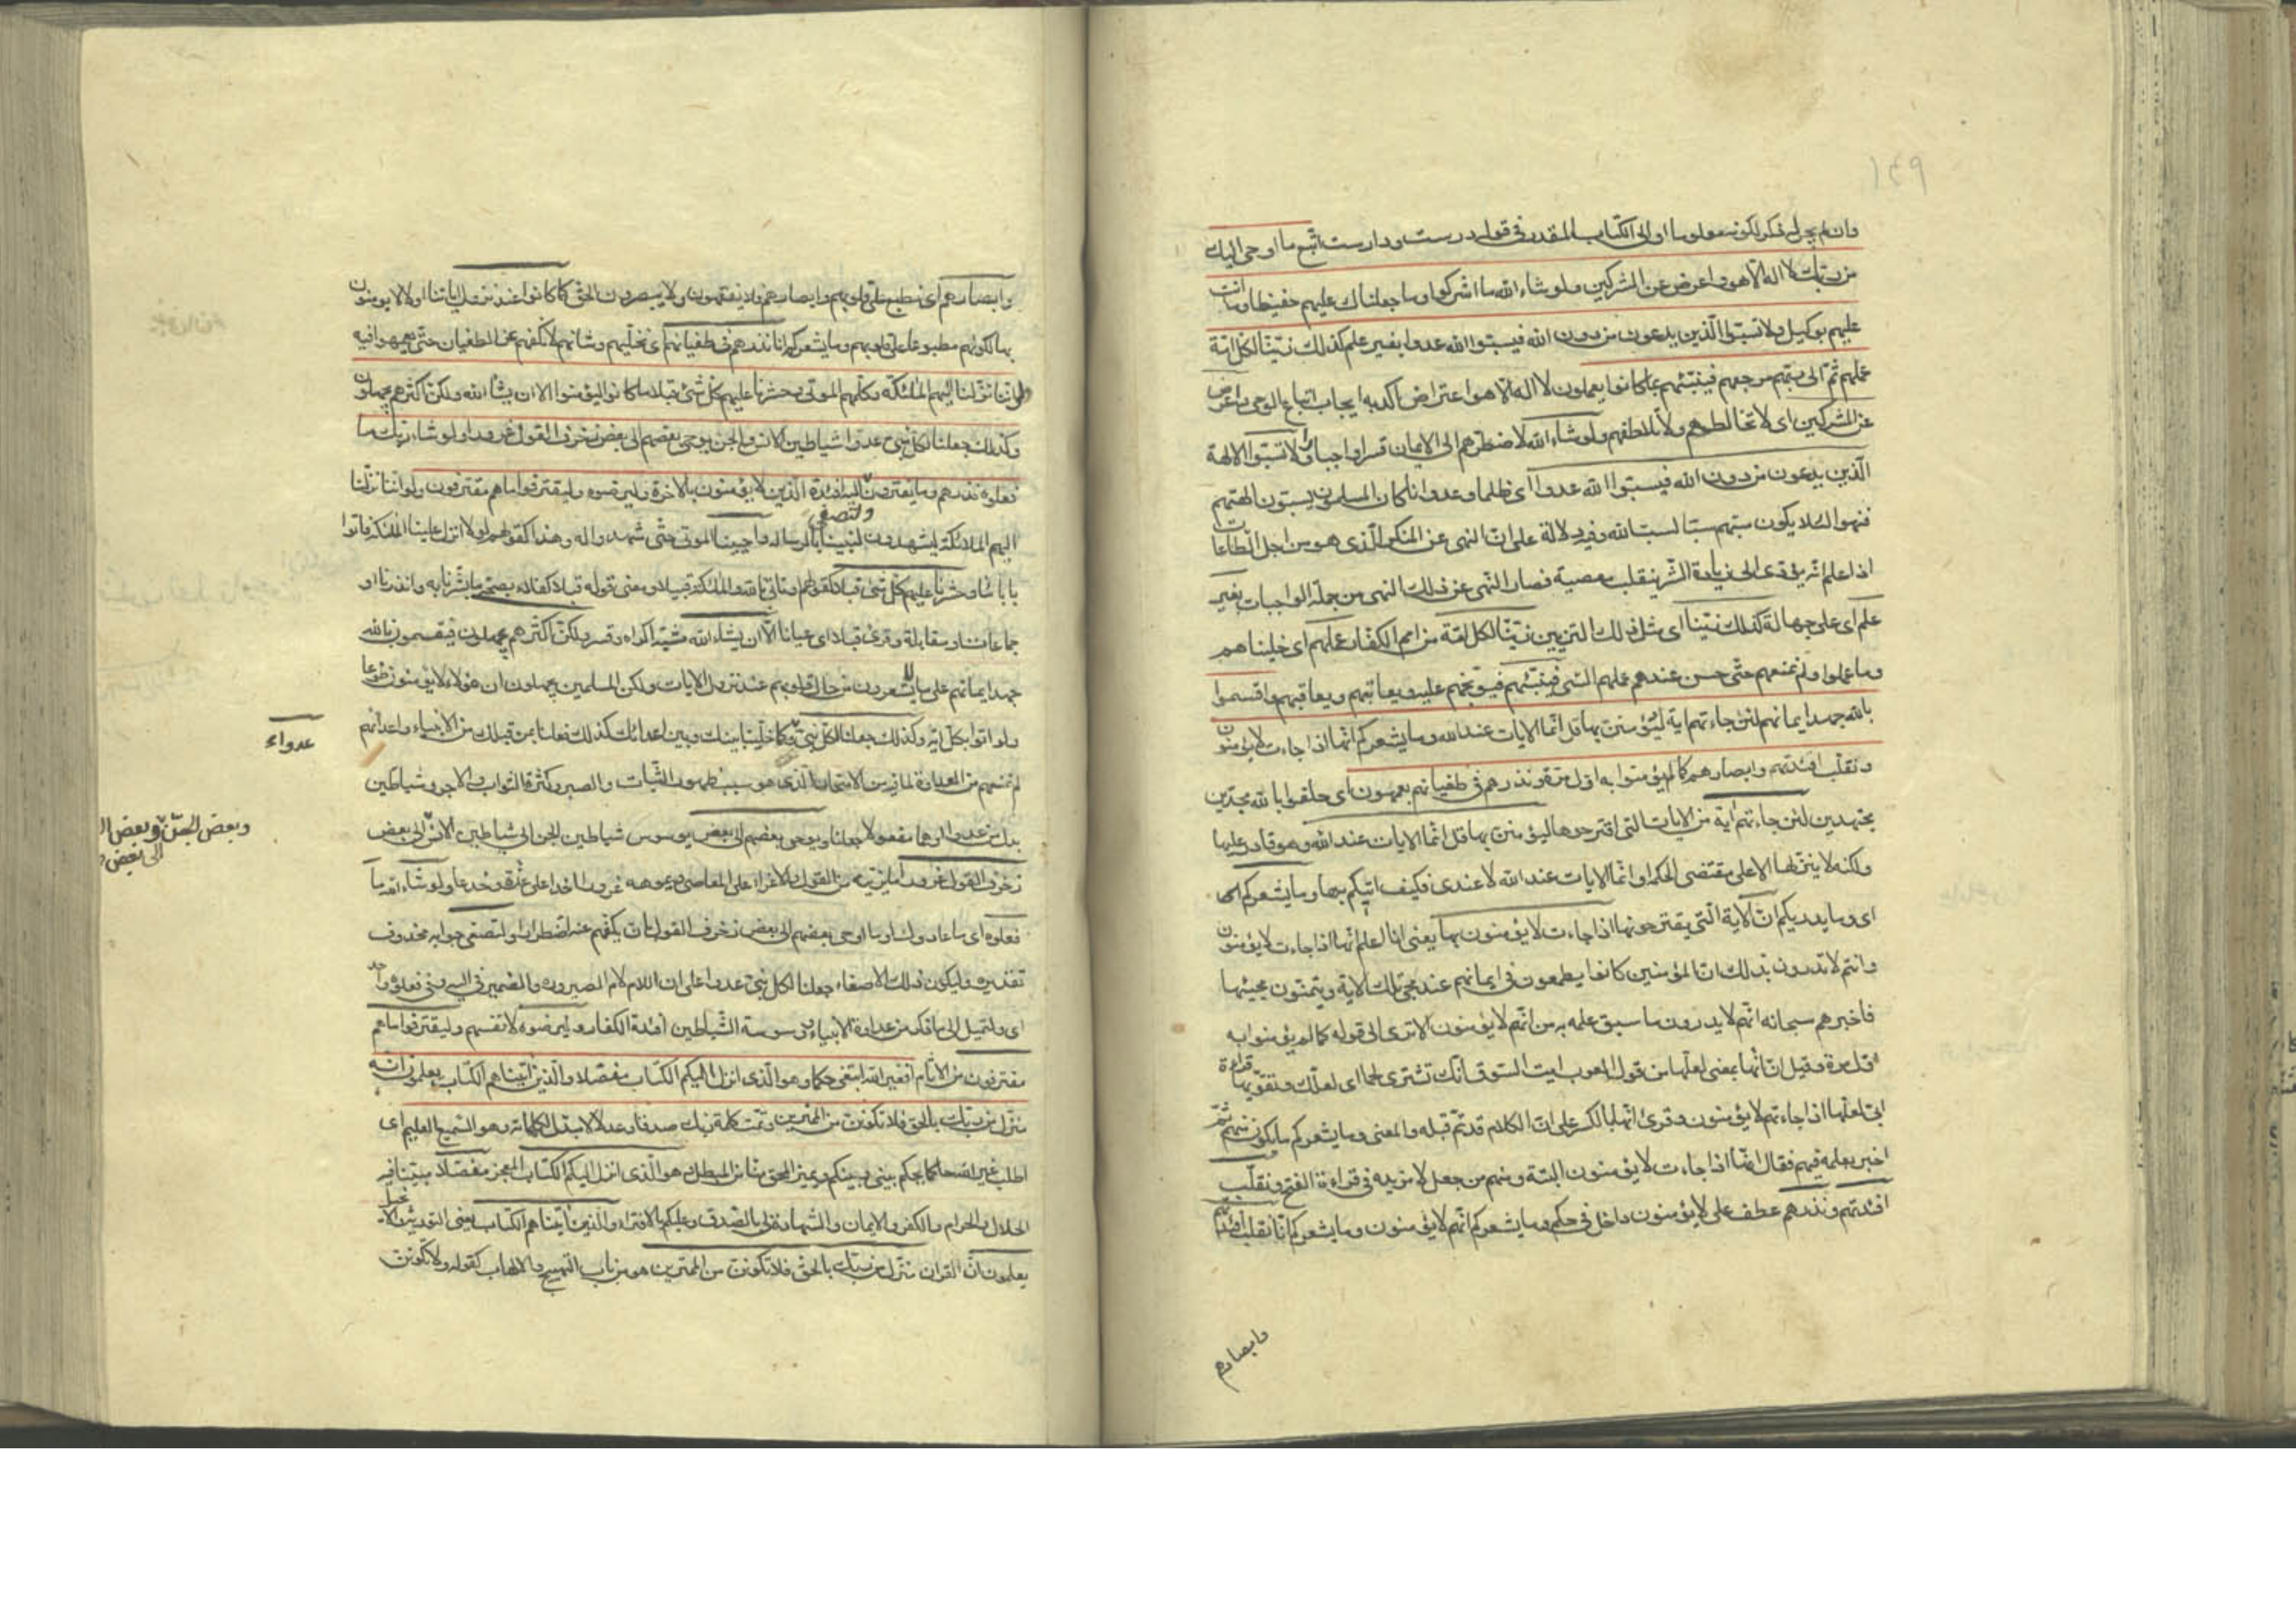 ١٤٩
وان لم يجر له ذكر لكونه معلوما او الى الكتاب المقدر في قوله درست ودارست اتبع ما اوحى اليك
من ربك لا اله الا هو واعرض عن المشركين ولو شاء الله ما اشركوا وما جعلناك عليهم حفيظا وما انت
عليهم بوكيل ولا تسبوا الذين يدعون من دون الله فيسبوا الله عدوا بغير علم كذلك زينا لكل امة
عملهم ثم الى ربهم مرجعهم فينبئهم بما كانوا يعملون لا اله الا هو اعتراض اكد به ايجاب اتباع الوحى واعرض
عن المشركين اى لا تخالطهم ولا تلاطفهم ولو شاء الله لاضطرهم الى الايمان قسرا واجبارا ولا تسبوا الالهة
الذين يدعون من دون الله فيسبوا الله عدوا اى ظلما وعدوانا كان المسلمون يسبون الهتهم
فنهوا لئلا يكون سبهم سببا لسب الله وفيه دلالة على ان النهى عن المنكر الذى هو من اجل الطاعات
اذا علم انه يؤدى الى زيادة الشر ينقلب معصية فصار النهى عن ذلك النهى من جملة الواجبات بغير
علم اى على جهالة كذلك زينا اى مثل ذلك التزيين زينا لكل امة من امم الكفار عملهم اى خليناهم
وما عملوا ولم نمنعهم حتى حسن عندهم عملهم السيئ فينبئهم فيوبخهم عليه ويعاتبهم ويعاقبهم واقسموا
بالله جهد ايمانهم لئن جاءتهم اية ليؤمنن بها قل انما الايات عند الله وما يشعركم انها اذا جاءت لا يؤمنون
ونقلب افئدتهم وابصارهم كما لم يؤمنوا به اول مرة ونذرهم في طغيانهم يعمهون اى حلفوا بالله مجدين
مجتهدين لئن جاءتهم اية من الايات التى اقترحوها ليؤمنن بها قل انما الايات عند الله وهو قادر عليها
ولكنه لا ينزلها الا على مقتضى الحكمة او انما الايات عند الله لا عندى فكيف اتيكم بها وما يشعركم انها
اى وما يدريكم ان الاية التى يقترحونها اذا جاءت لا يؤمنون بها يعنى انا اعلم انها اذا جاءت لا يؤمنون
وانتم لا تدرون بذلك ان المؤمنين كانوا يطمعون في ايمانهم عند مجئ تلك الاية ويتمنون مجيئها
فاخبرهم سبحانه انهم لا يدرون ما سبق علمه به من انهم لا يؤمنون الا ترى الى قوله كما لم يؤمنوا به
اول مرة وقيل ان انها بمعنى لعلها من قول العرب ايت السوق انك تشترى لحما اى لعلك وتقويها قراءة
ابى لعلها اذا جاءتهم لا يؤمنون وقرئ انها بالكسر على ان الكلام قد تم قبله والمعنى وما يشعركم ما يكون منهم ثم
اخبر بعلمه فيهم فقال انها اذا جاءت لا يؤمنون البتة ومنهم من جعل لا مزيدة في قراءة الفتح ونقلب
افئدتهم ونذرهم عطف على لا يؤمنون داخل في حكم وما يشعركم انهم لا يؤمنون وما يشعركم انا نقلب افئدتهم
وابصارهم
وابصارهم اى نطبع على قلوبهم وابصارهم فلا يفقهون ولا يبصرون الحق كما كانوا عند نزول اياتنا اولا لا يؤمنون
بها لكونهم مطبوعا على قلوبهم وما يشعركم انا نذرهم في طغيانهم اى نخليهم وشانهم لا نكفهم عن الطغيان حتى يعمهوا فيه
ولو اننا نزلنا اليهم الملئكة وكلمهم الموتى وحشرنا عليهم كل شئ قبلا ما كانوا ليؤمنوا الا ان يشاء الله ولكن اكثرهم يجهلون
وكذلك جعلنا لكل نبى عدوا شياطين الانس والجن يوحى بعضهم الى بعض زخرف القول غرورا ولو شاء ربك ما
فعلوه فذرهم وما يفترون ولتصغى اليه افئدة الذين لا يؤمنون بالاخرة وليرضوه وليقترفوا ما هم مقترفون ولو اننا نزلنا
اليهم الملائكة يشهدون لنبينا بالرسالة واحيينا الموتى حتى شهدوا له وهذا كقولهم لولا انزل علينا الملئكة فاتوا
بابائنا وحشرنا عليهم كل شئ قبلا كقولهم او تاتى بالله والملئكة قبيلا ومعنى قوله قبلا كفلاء بصحة ما بشرنا به وانذرنا او
جماعات او مقابلة وقرئ قبلا اى عيانا الا ان يشاء الله مشية اكراه وقسر ولكن اكثرهم يجهلون فيقسمون بالله
جهد ايمانهم على ما لا يشعرون من حال قلوبهم عند نزول الايات ولكن المسلمين يجهلون ان هؤلاء لا يؤمنون طوعا
ولو اتوا بكل اية وكذلك جعلنا لكل نبى وكما خلينا بينك وبين اعدائك كذلك فعلنا بمن قبلك من الانبياء واعدائهم
لم نمنعهم من العداوة لما فيه من الامتحان الذى هو سبب ظهور الثبات والصبر وكثرة الثواب والاجر وشياطين
بدل من عدوا او هما مفعولا جعلنا ويوحى بعضهم الى بعض يوسوس شياطين الجن الى شياطين الانس الى بعض
زخرف القول غرورا ما يزينه من القول والاغراء على المعاصى ويموهه غرورا خدعا على غرة وخدعا ولو شاء ربك ما
فعلوه اى ما عادوك او ما اوحى بعضهم الى بعض زخرف القول بان يكفهم عنه اضطرارا ولتصغى جوابه محذوف
تقديره وليكون ذلك الاصغاء جعلنا لكل نبى عدوا على ان اللام لام الصيرورة والضمير في اليه وفى فعلوه واحد
اى ولتميل الى ما ذكر من عداوة الانبياء ووسوسة الشياطين افئدة الكفار وليرضوه لانفسهم وليقترفوا ما هم
مقترفون من الاثام افغير الله ابتغى حكما وهو الذى انزل اليكم الكتاب مفصلا والذين اتيناهم الكتاب يعلمون انه
منزل من ربك بالحق فلا تكونن من الممترين وتمت كلمة ربك صدقا وعدلا لا مبدل لكلماته وهو السميع العليم اى
اطلب غير الله حاكما يحكم بينى وبينكم ويميز المحق منا من المبطل هو الذى انزل اليكم الكتاب المعجز مفصلا مبينا فيه
الحلال والحرام والكفر والايمان والشهادة لى بالصدق وعليكم بالافتراء والذين اتيناهم الكتاب يعنى التورية والانجيل
يعلمون ان القران منزل من ربك بالحق فلا تكونن من الممترين هو من باب التهييج والالهاب كقوله ولا تكونن
عدواء
وبعض الجن وبعض ا
الى بعض